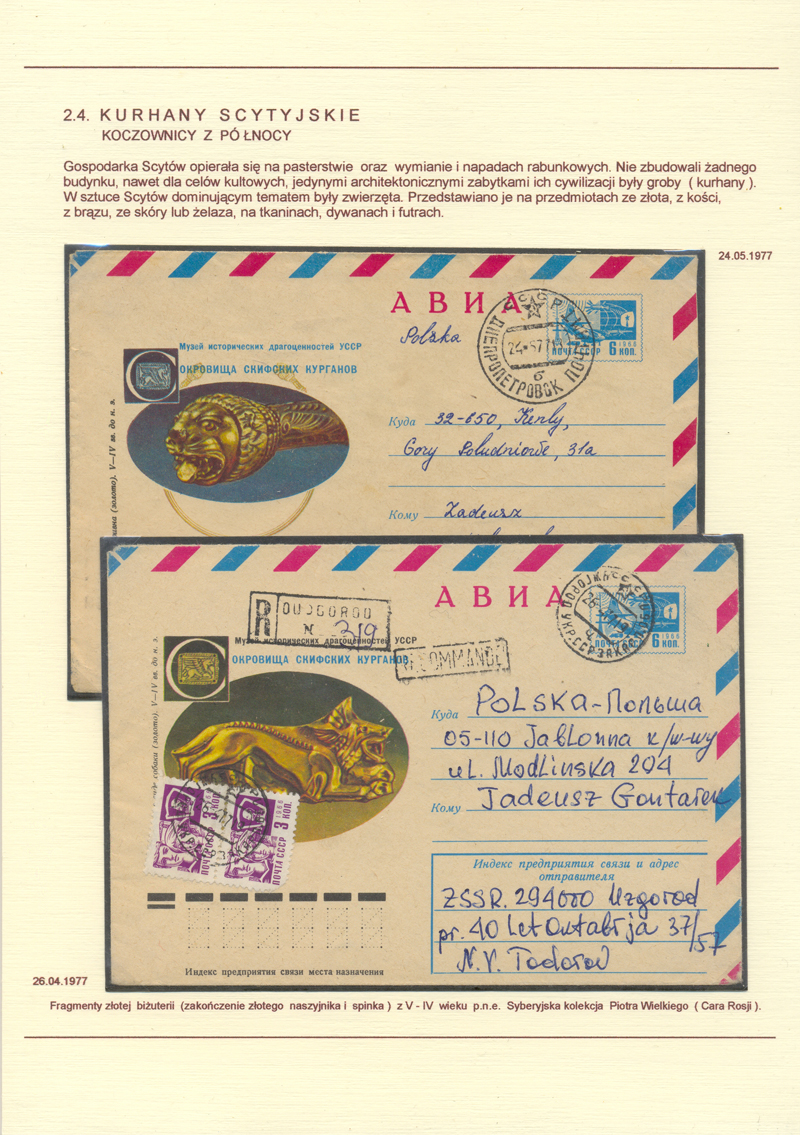 2.4. KURHANY SCYTYJSKIE
KOCZOWNICY Z PÓ ŁNOCY
Gospodarka Scytów opierała się na pasterstwie oraz wymianie i napadach rabunkowych. Nie zbudowali żadnego
budynku, nawet dla celów kultowych, jedynymi architektonicznymi zabytkami ich cywilizacji były groby ( kurhany ).
W sztuce Scytów dominującym tematem były zwierzęta. Przedstawiano je na przedmiotach ze złota, z kości,
z brązu, ze skóry lub żelaza, na tkaninach, dywanach i futrach.
24.05.1977
АВИА
Polska
ДНЕПРОПЕТРОВСК
6
ПОЧТА СССР 6 КОП.
1966
Музей исторических драгоценностей УССР
ОКРОВИЩА СКИФСКИХ КУРГАНОВ
(золото). V—IV вв. до н. э.
Куда 32-650, Kenty,
Gory Południowe, 31a
Кому Tadeusz
АВИА
R
N 319
Музей исторических драгоценностей УССР
ОКРОВИЩА СКИФСКИХ КУРГАНОВ
COMMANDÉ
1966
6 КОП.
собаки (золото). V—IV вв. до н. э.
Куда POLSKA-Польша
05-110 Jabłonna k/w-wy
ul. Modlinska 294
Кому Tadeusz Gontarek
ПОЧТА СССР 3 КОП.
1966
ПОЧТА СССР 3 КОП.
1966
Индекс предприятия связи и адрес
отправителя
ZSSR. 294000 Uzgorod
pr. 40 Let Oktabrja 37/57
N.V. Todorov
Индекс предприятия связи места назначения
26.04.1977
Fragmenty złotej biżuterii (zakończenie złotego naszyjnika i spinka ) z V - IV wieku p.n.e. Syberyjska kolekcja Piotra Wielkiego ( Cara Rosji ).